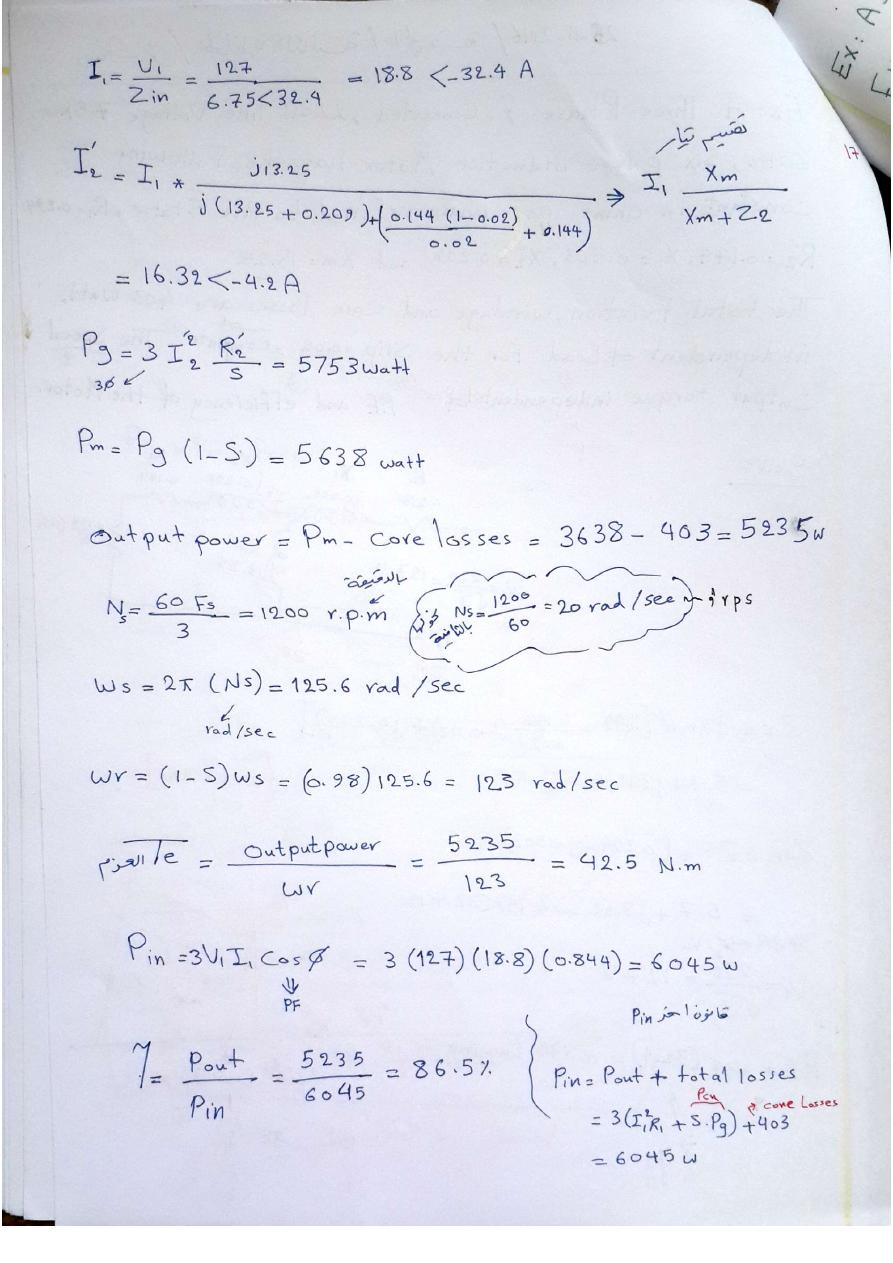 Ex: A
I₁ = U₁ / Zin = 127 / 6.75<32.4 = 18.8 <-32.4 A
تقسيم تيار
17
I₂' = I₁ * j13.25 / (j(13.25 + 0.209) + (0.144 (1-0.02) / 0.02 + 0.144)) ⇒ I₁ Xm / (Xm + Z2)
= 16.32 <-4.2 A
Pg = 3 I₂'² R₂' / S = 5753 watt
3ø
Pm = Pg (1-S) = 5638 watt
Output power = Pm - Core losses = 3638 - 403 = 5235 w
بالدقيقة
Ns = 60 Fs / 3 = 1200 r.p.m
بالثانية Ns = 1200 / 60 = 20 rad/sec rps
Ws = 2π (Ns) = 125.6 rad/sec
rad/sec
Wr = (1-S) Ws = (0.98) 125.6 = 123 rad/sec
العزم Te = Output power / Wr = 5235 / 123 = 42.5 N.m
Pin = 3V₁ I₁ Cos ø = 3 (127) (18.8) (0.844) = 6045 w
⇓
PF
قانون اخر Pin
η = Pout / Pin = 5235 / 6045 = 86.5%
Pin = Pout + total losses
Pcu
core Losses
= 3(I₁²R₁ + S.Pg) + 403
= 6045 w